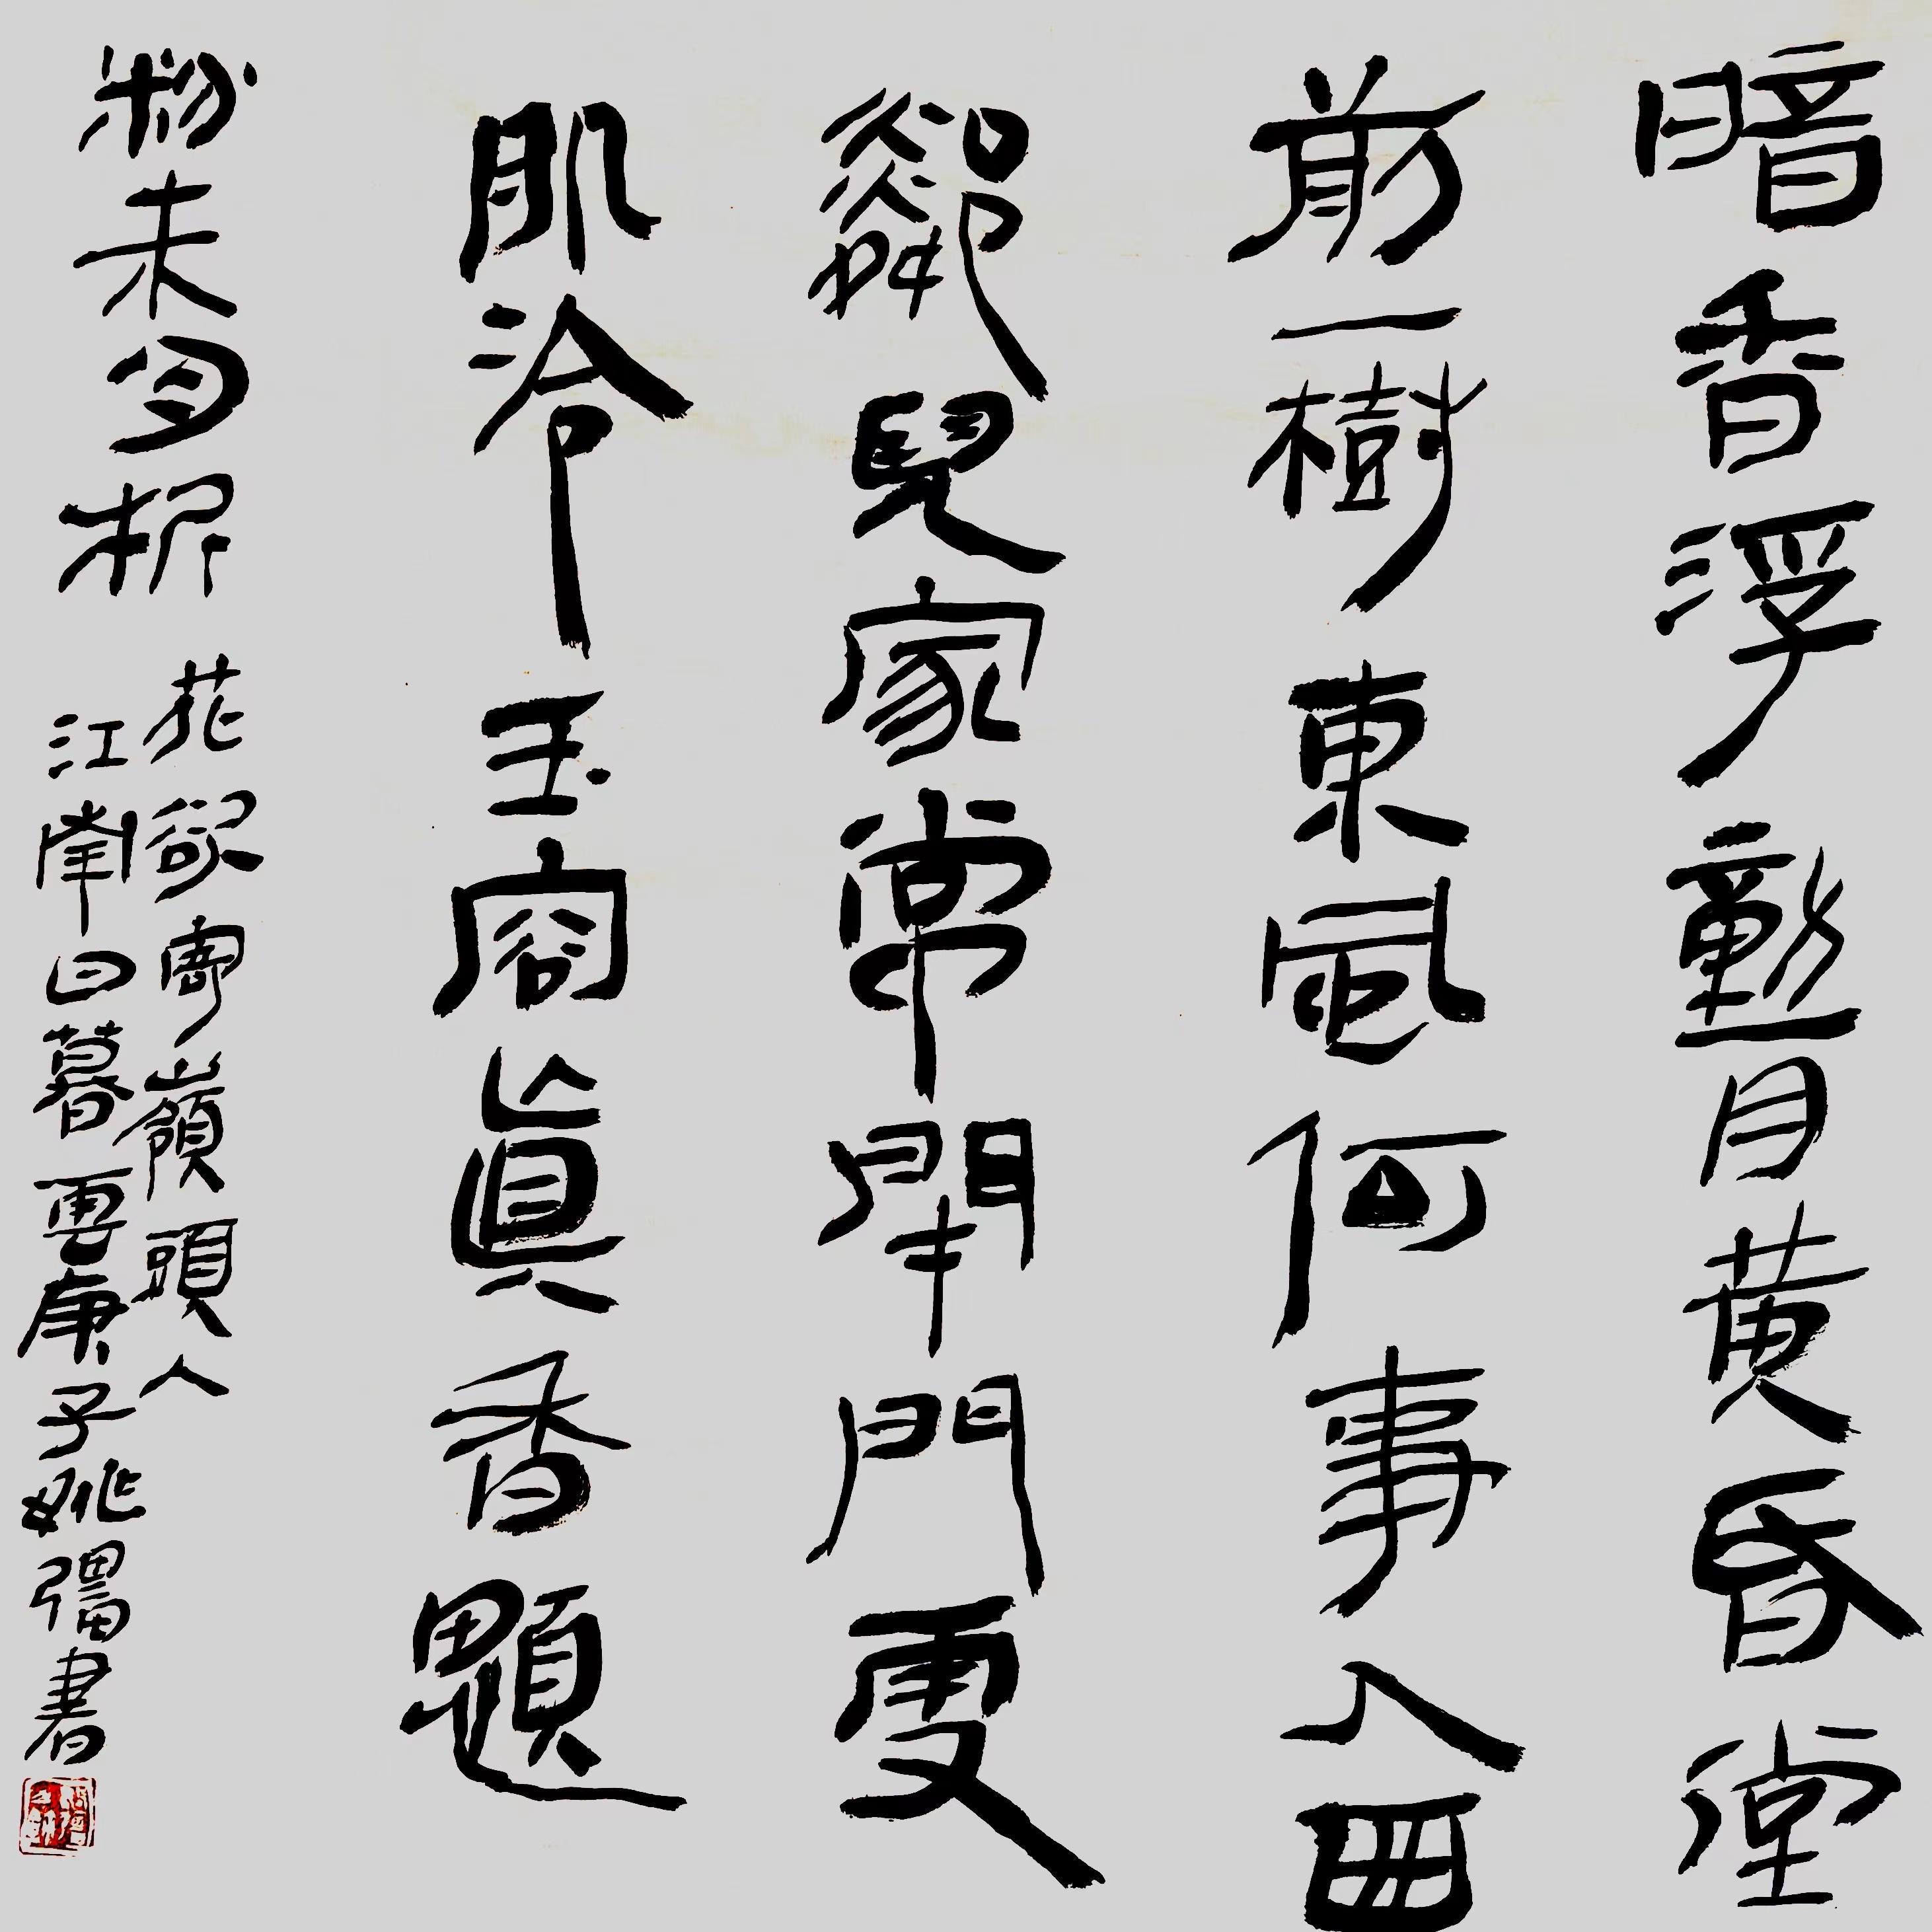 暗香浮動月黃昏堂
前一樹東風何事入西
鄰兒家常閉門雪
肌冷玉容真香顋
粉未勻折
花欲寄嶺頭人
江南日暮雲庚子姚書